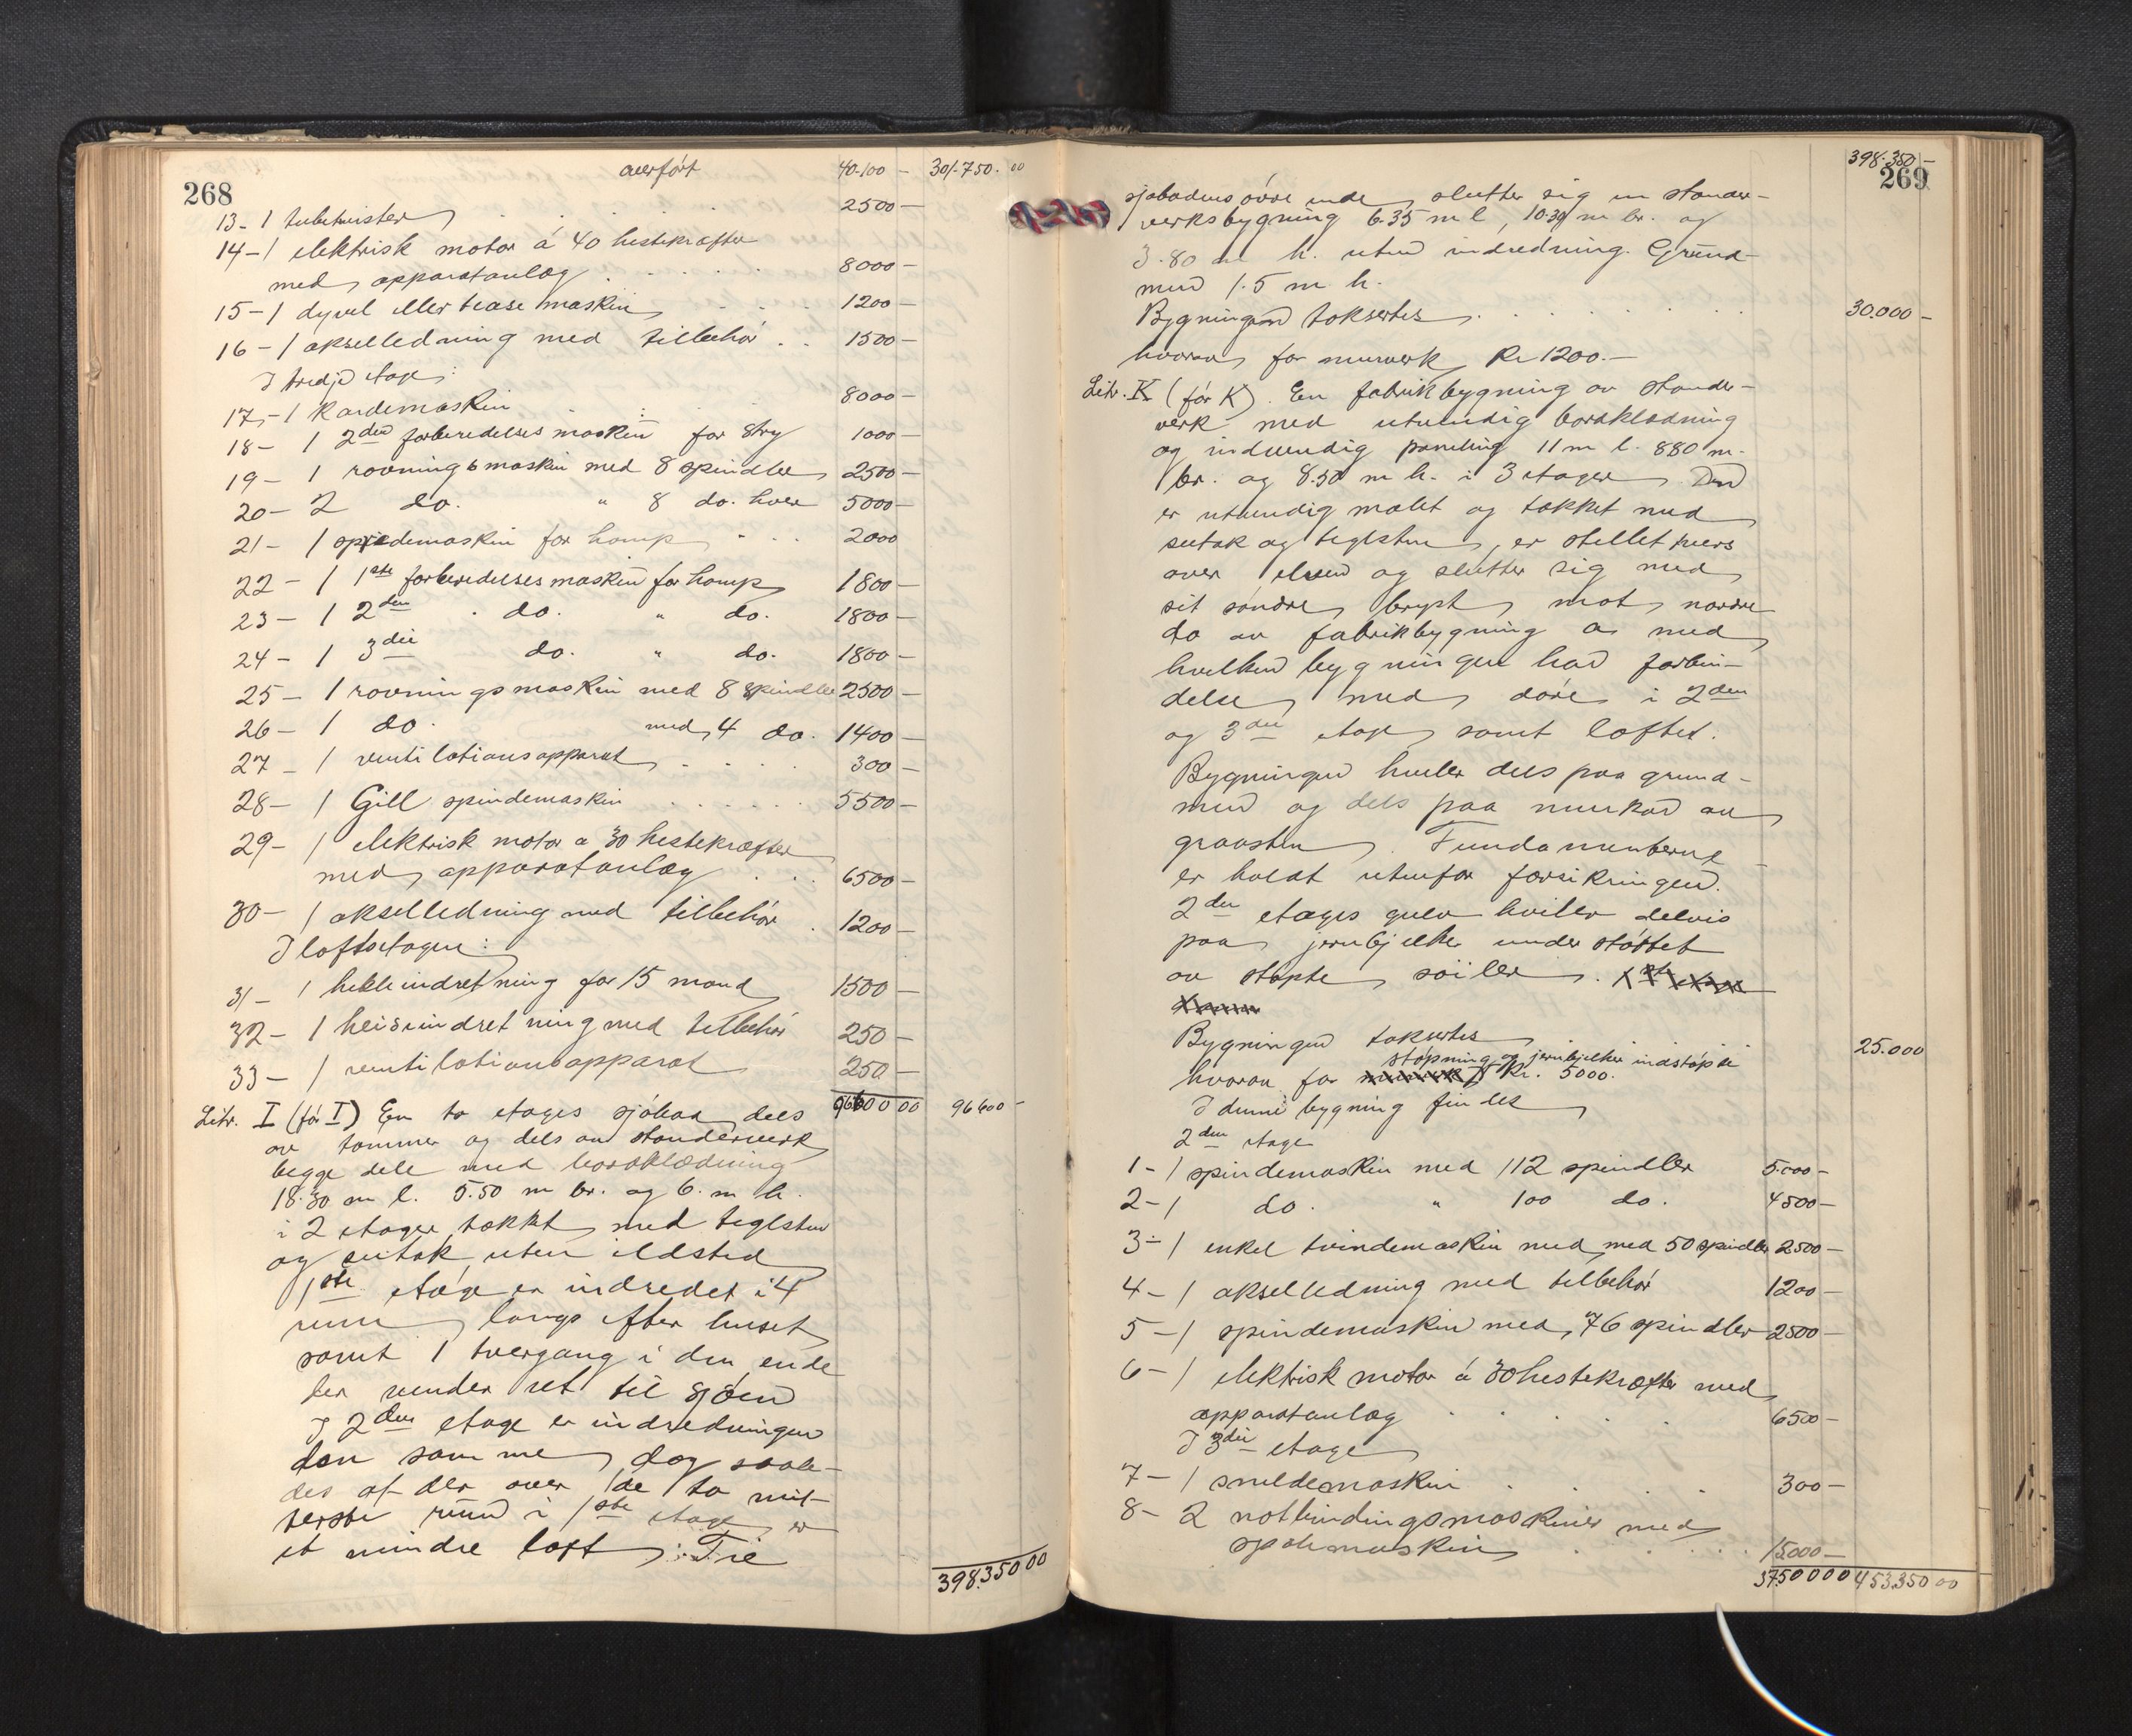 268
overført 40.100 – 301.750.00
13 – 1 tubetvister . . . . 2500 –
14 – 1 elektrisk motor á 40 hestekræfter
med apparatanlæg . . . . 8000 –
15 – 1 dyvel eller tease maskin . . . 1200 –
16 – 1 akselledning med tilbehør . . 1500 –
I tredje etage:
17 – 1 kardemaskin . . . 8000 –
18 – 1 2den forberedelses maskin for Stry 1000 –
19 – 1 rovningsmaskin med 8 spindler 2500 –
20 – 2 do. " 8 do. hver 5000 –
21 – 1 spredemaskin for hamp . . . 2000
22 – 1 1ste forberedelses maskin for hamp 1800 –
23 – 1 2den do. " do. 1800 –
24 – 1 3die do. " do. 1800 –
25 – 1 rovningsmaskin med 8 spindler 2500 –
26 – 1 do. med 4 do. 1400 –
27 – 1 ventilationsapparat . . . . 300 –
28 – 1 Gill spindemaskin . . . . . 5500 –
29 – 1 elektrisk motor a 30 hestekræfter
med apparatanlæg . . . 6500 –
30 – 1 akselledning med tilbehør . 1200 –
I loftsetagen:
31 – 1 hekleindretning for 15 mand 1500 –
32 – 1 heisindretning med tilbehør 250 –
33 – 1 ventilationsapparat 250 –
96600 00 96600 –
Litr. I (før I) En to etages sjøbod dels
av tømmer og dels av stenderverk
begge dele med bordklædning
18.30 m l. 5.50 m br. og 6. m h.
i 2 etager tækket med teglsten
og sutak, uten ildsted
1ste etage er indredet i 4
rum langs efter huset
samt 1 tvergang i den ende
der vender ret til sjøen
I 2den etage er indredningen
den samme, dog saale-
des at der over de to mid-
terste rum i 1ste etage er
et mindre loft. Til
398.350 00
398.350 –
269
sjøbodens øvre ende slutter sig en stender-
verksbygning 6.35 m l, 10.30 m br. og
3.80 m h. uten indredning. Grund-
mur 1.5 m h.
Bygningen taksertes . . . . . . . 30.000 –
hvorav for murverk Kr 1200.–
Litr. K (før K). En fabrikbygning av stender-
verk med utvendig bordklædning
og indvendig paneling 11 m l. 880 m.
br. og 8.50 m h. i 3 etager. Den
er utvendig malet og tækket med
sutak og teglsten, er stillet tvers
over elven og slutter sig med
sit søndre bryst mot nordre
do av fabrikbygning a med
hvilken bygningen har forbin-
delse med døre i 2den
og 3die etage samt loftet.
Bygningen hviler dels paa grund-
mur og dels paa murkar av
graasten. Fundamenterne
er holdt utenfor forsikringen.
2den etages gulv hviler delvis
paa jernbjelker understøttet
av støpte søiler.
Bygningen taksertes . . . . 25.000
støpning og jernbjelker indstøpte
hvorav for Kr. 5000.
I denne bygning findes
2den etage
1 – 1 spindemaskin med 112 spindler 5.000 –
2 – 1 do. " 100 do. 4500 –
3 – 1 enkel tvindemaskin med med 50 spindler 2500 –
4 – 1 akselledning med tilbehør 1200 –
5 – 1 spindemaskin med 76 spindler 2500 –
6 – 1 elektrisk motor á 30 hestekræfter med
apparatanlæg . . . . . 6500 –
I 3die etage
7 – 1 snildemaskin . . . . 300 –
8 – 2 notbindingsmaskiner med
spolemaskin . . . . 15000 –
37500 00 453350 00